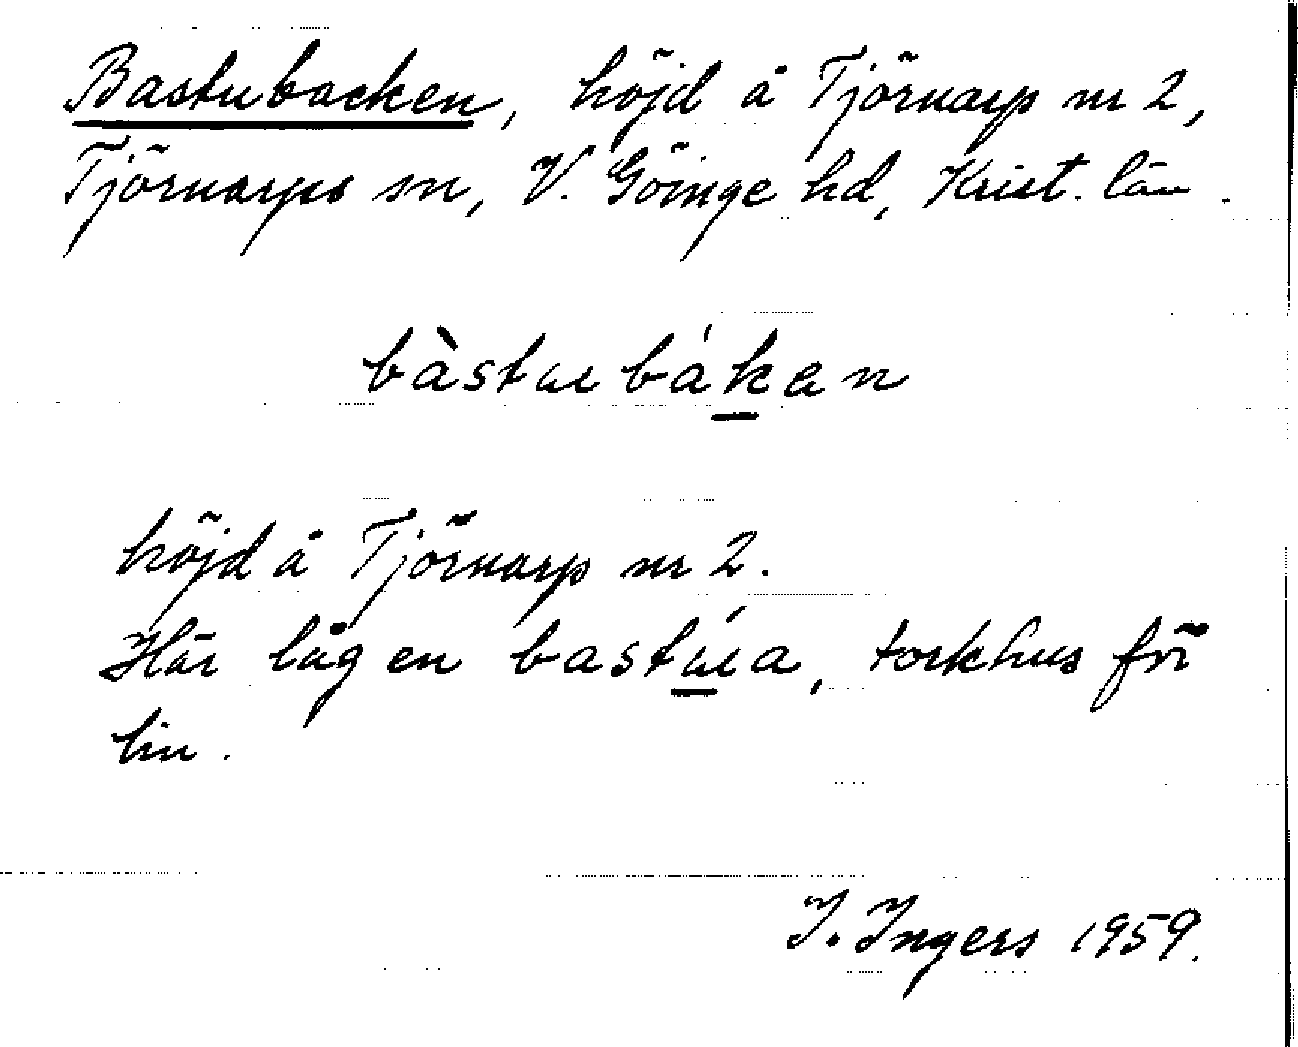 Bastubacken, höjd å Tjörnarp nr 2,
Tjörnarps sn, V. Göinge hd, Krist. län.
bàstɯbákan
höjd å Tjörnarp nr 2.
Här låg en bastɯ́a, torkhus för
lin.
I. Ingers 1959.